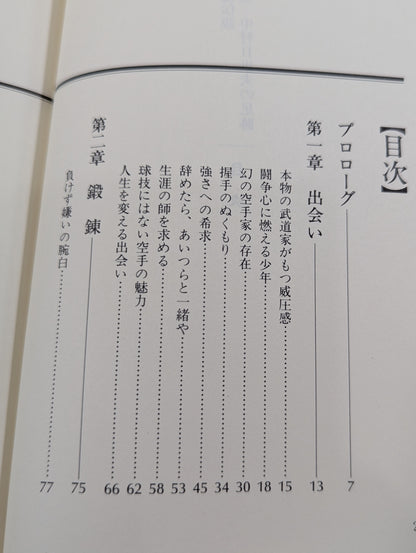 【目次】
プロローグ 7
第一章 出会い 13
本物の武道家がもつ威圧感 15
闘争心に燃える少年 18
幻の空手家の存在 30
握手のぬくもり 34
強さへの希求 45
辞めたら、あいつらと一緒や 53
生涯の師を求める 58
球技にはない空手の魅力 62
人生を変える出会い 66
第二章 鍛錬 75
負けず嫌いの腕白 77